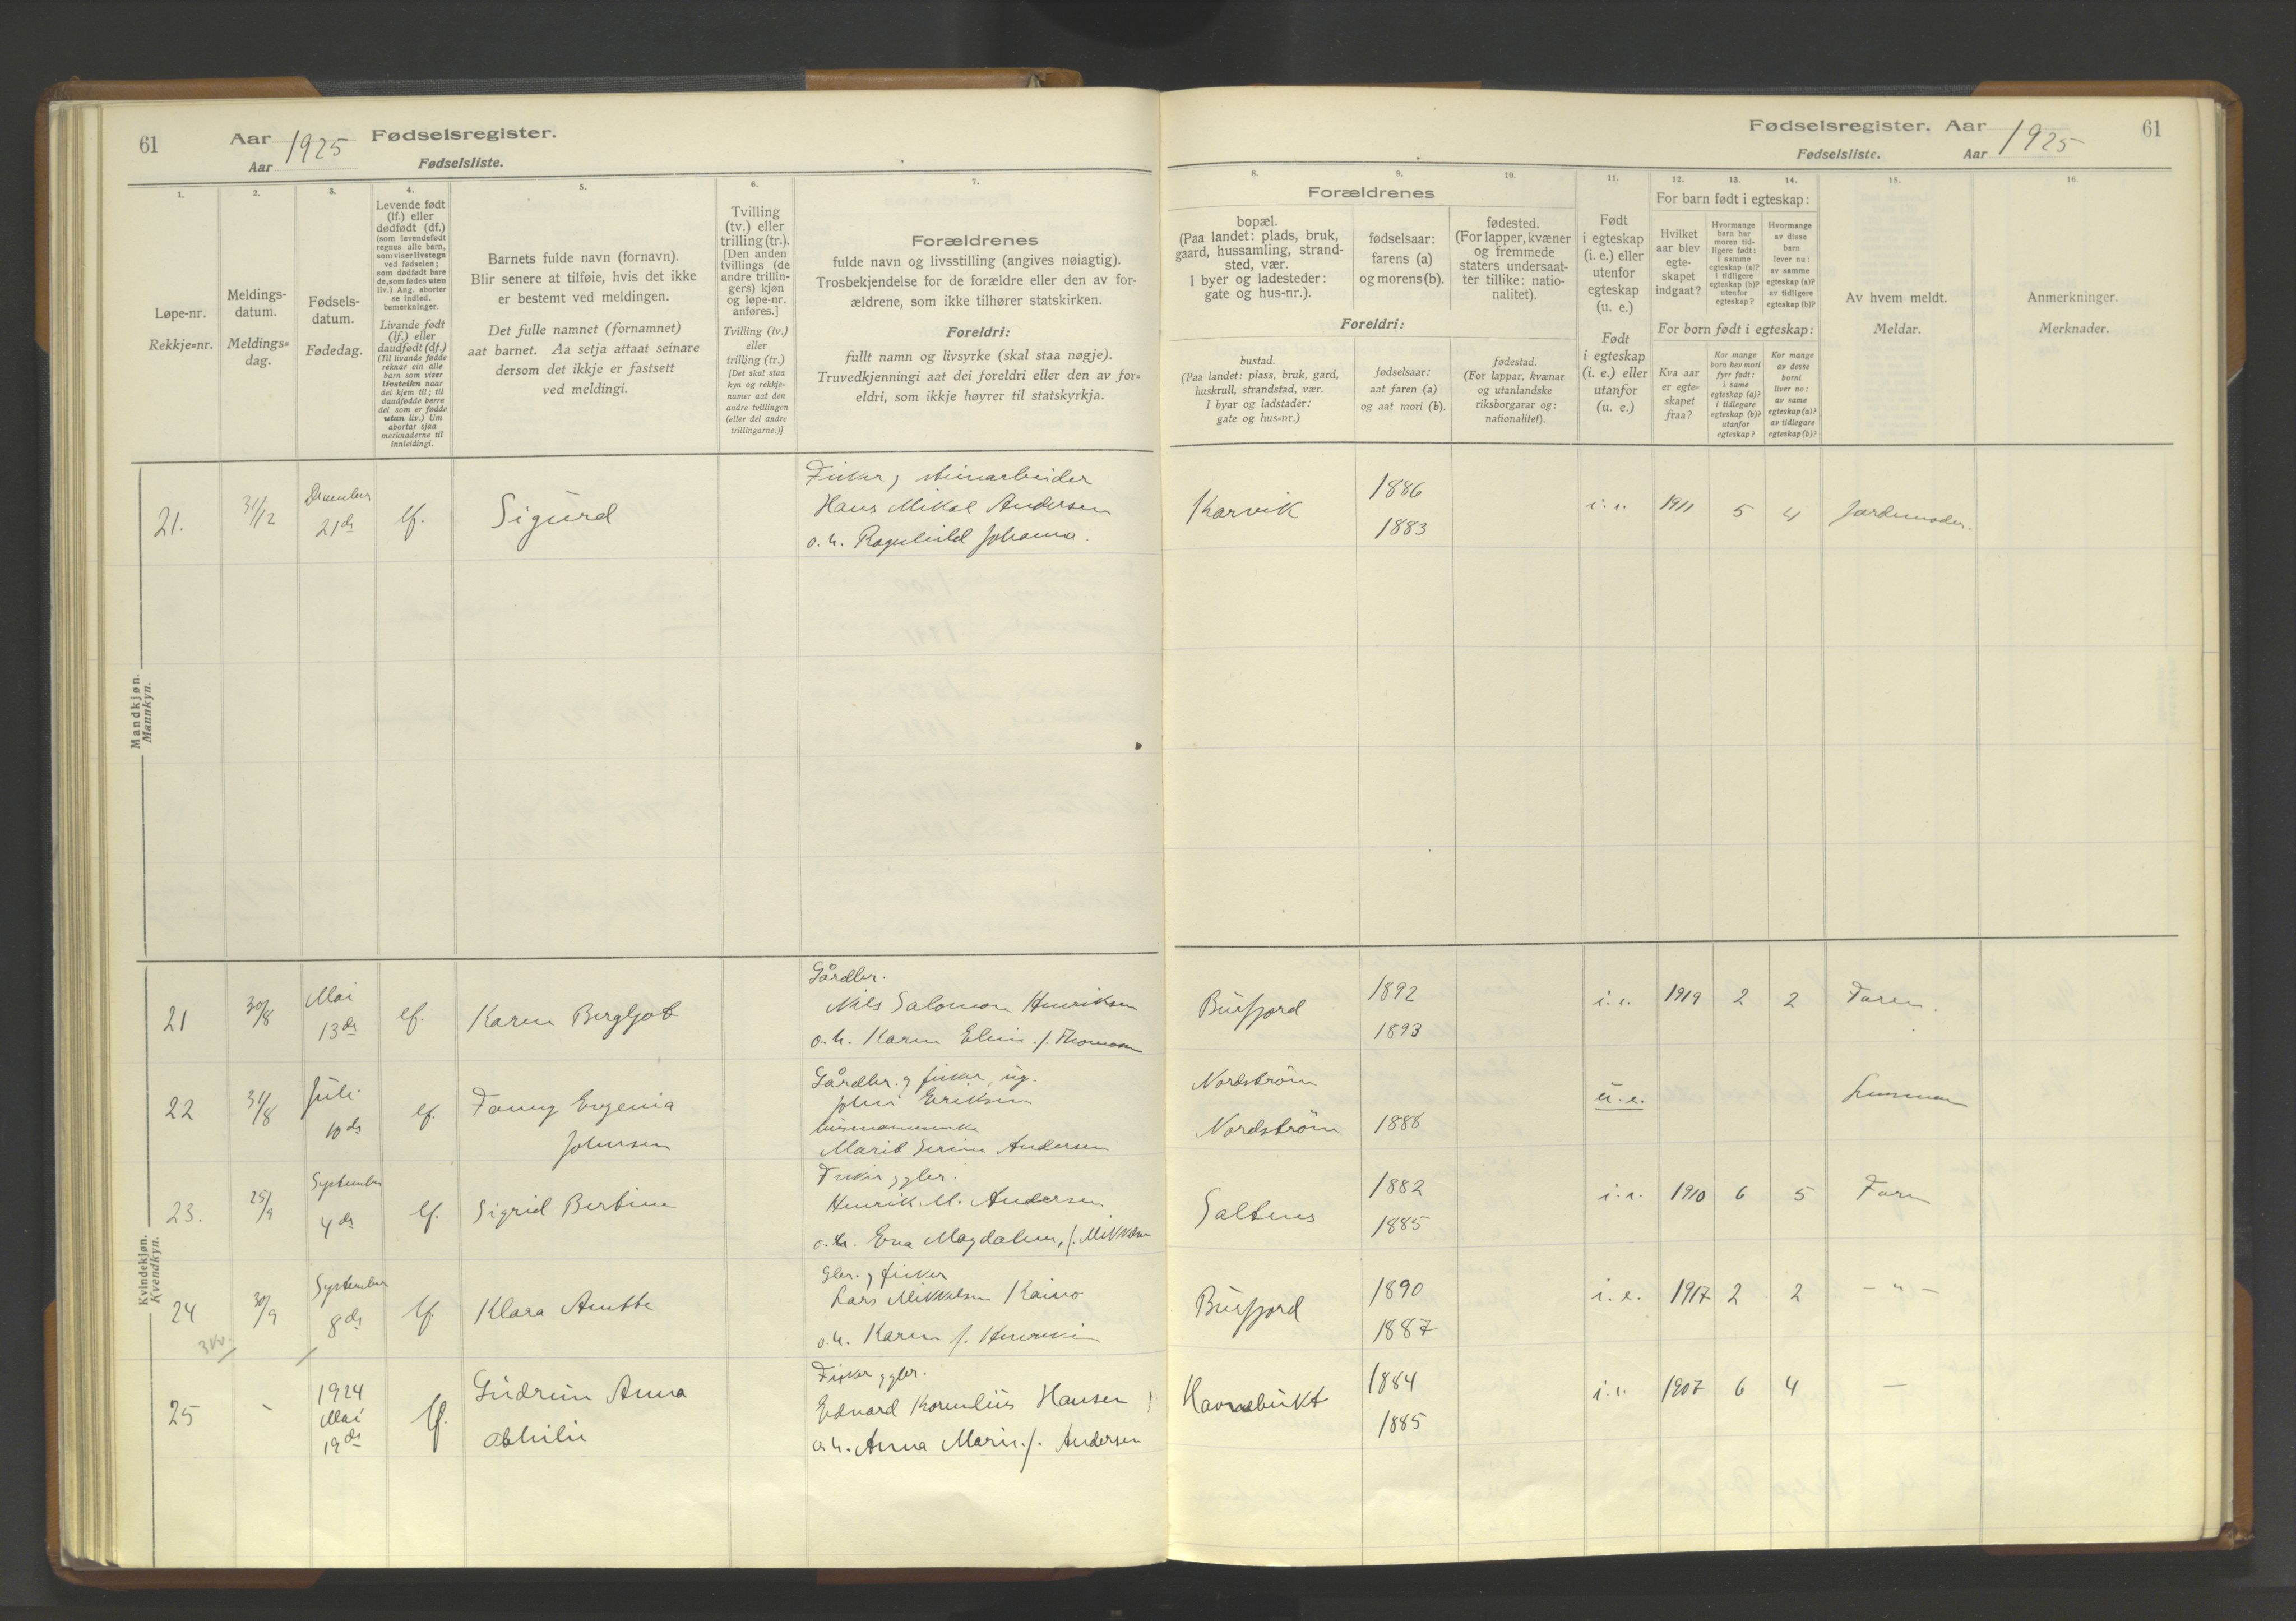 61
Aar 1925 Fødselsregister.
Aar Fødselsliste.
1.
Løpe-nr.
Rekkje=nr.
2.
Meldings-
datum.
Meldings=
dag.
3.
Fødsels-
datum.
Fødedag.
4.
Levende født
(lf.) eller
dødfødt (df.)
(som levendefødt
regnes alle barn,
som viser livstegn
ved fødselen;
som dødfødt bare
de, som fødes uten
liv.) Ang. aborter
se indled.
bemerkninger.
Livande født
(lf.) eller
daudfødt (df.)
(Til livande fødde
reknar ein alle
barn som viser
livsteikn naar
dei kjem til; til
daudfødde berre
dei som er fødde
utan liv.) Um
abortar sjaa
merknaderne til
innleidingi.
5.
Barnets fulde navn (fornavn).
Blir senere at tilføie, hvis det ikke
er bestemt ved meldingen.
Det fulle namnet (fornamnet)
aat barnet. Aa setja attaat seinare
dersom det ikkje er fastsett
ved meldingi.
6.
Tvilling
(tv.) eller
trilling (tr.).
[Den anden
tvillings (de
andre trillin-
gers) kjøn
og løpe-nr.
anføres.]
Tvilling (tv.)
eller
trilling (tr.)
[Det skal staa
kyn og rekkje-
numer aat den
andre tvillingen
(eller dei andre
trillingarne.)]
7.
Forældrenes
fulde navn og livsstilling (angives nøiagtig).
Trosbekjendelse for de forældre eller den av for-
ældrene, som ikke tilhører statskirken.
Foreldri:
fullt namn og livsyrke (skal staa nøgje).
Truvedkjenningi aat dei foreldri eller den av for=
eldri, som ikkje høyrer til statskyrkja.
Fødselsregister. Aar 1925
61
Fødselsliste. Aar
8.
Forældrenes
bopæl.
(Paa landet: plads, bruk,
gaard, hussamling, strand-
sted, vær.
I byer og ladesteder:
gate og hus-nr.).
Foreldri:
bustad.
(Paa landet: plass, bruk, gard,
huskrull, strandstad, vær.
I byar og ladstader:
gate og hus=nr.)
9.
fødselsaar:
farens (a)
og morens (b).
fødselsaar:
aat faren (a)
og aat mori (b).
10.
fødested.
(For lapper, kvæner
og fremmede
staters undersaat-
ter tillike: natio-
nalitet).
fødestad.
(For lappar, kvænar
og utanlandske
riksborgarar og:
nationalitet).
11.
Født
i egteskap
(i. e.) eller
utenfor
egteskap
(u. e.)
Født
i egteskap
(i. e.) eller
utanfor
(u. e.)
12.
13.
14.
For barn født i egteskap:
Hvilket
aar blev
egte-
skapet
indgaat?
Hvormange
barn har
moren tid-
ligere født:
i samme
egteskap (a)?
i tidligere
egteskap (b)?
utenfor
egteskap?
Hvormange
av disse
barn
lever nu:
av samme
egteskap (a)?
av tidligere
egteskap (b)?
For born født i egteskap:
Kva aar
er egte=
skapet
fraa?
Kor mange
born hev mori
fyrr født:
i same
egteskap (a)?
i tidlegare
egteskap (b)?
utanfor
egteskap?
Kor mange
av desse
borni
liver no:
av same
egteskap (a)?
av tidlegare
egteskap (b)?
15.
Av hvem meldt.
Meldar.
16.
Anmerkninger.
Merknader.
Mandkjøn.
Mannkyn.
21. 31/12 December 21de lf. Sigurd
Fisker,
Hans Mikal Andersen
o. h. Ragnhild Johanna.
Karvik 1886 1883 i. e. 1911 5 4 Jordemoder.
Kvindekjøn.
Kvendkyn.
21 30/8 Mai 13de lf. Karen Bergljot
Gårdbr.
Nils Salomon Henriksen
o. h. Karen Eline f. Thomassen
Burfjord 1892 1893 i. e. 1919 2 2 Faren.
22 31/8 Juli 10de lf. Fanny Eugenia
Johnsen
Gårdbr. og fisker, ug.
John Eriksen
Marit Andersen
Nordström
Nordström 1886 u. e. Lensman
23. 25/9 September 4de lf. Sigrid Bertine
Fisker, gbr.
Henrik M. Andersen
o. h. Eva Magdalene, f. Mikkelsen
Saltnes 1882 1885 i. e. 1910 6 5 Faren
24 30/9 September 8de lf. Klara Anette
Gbr. og fisker
Lars Mikkelsen Kaino
o. h. Karen f. Henriksen
Burfjord 1890 1887 i. e. 1917 2 2 — " —
25 - 1924 Mai 19de lf. Gudrun Anna
Othilie
Fisker, gbr.
Edvard Kornelius Hansen
o. h. Anna Marie f. Andersen
Havnebukt 1884 1885 i. e. 1907 6 4 —